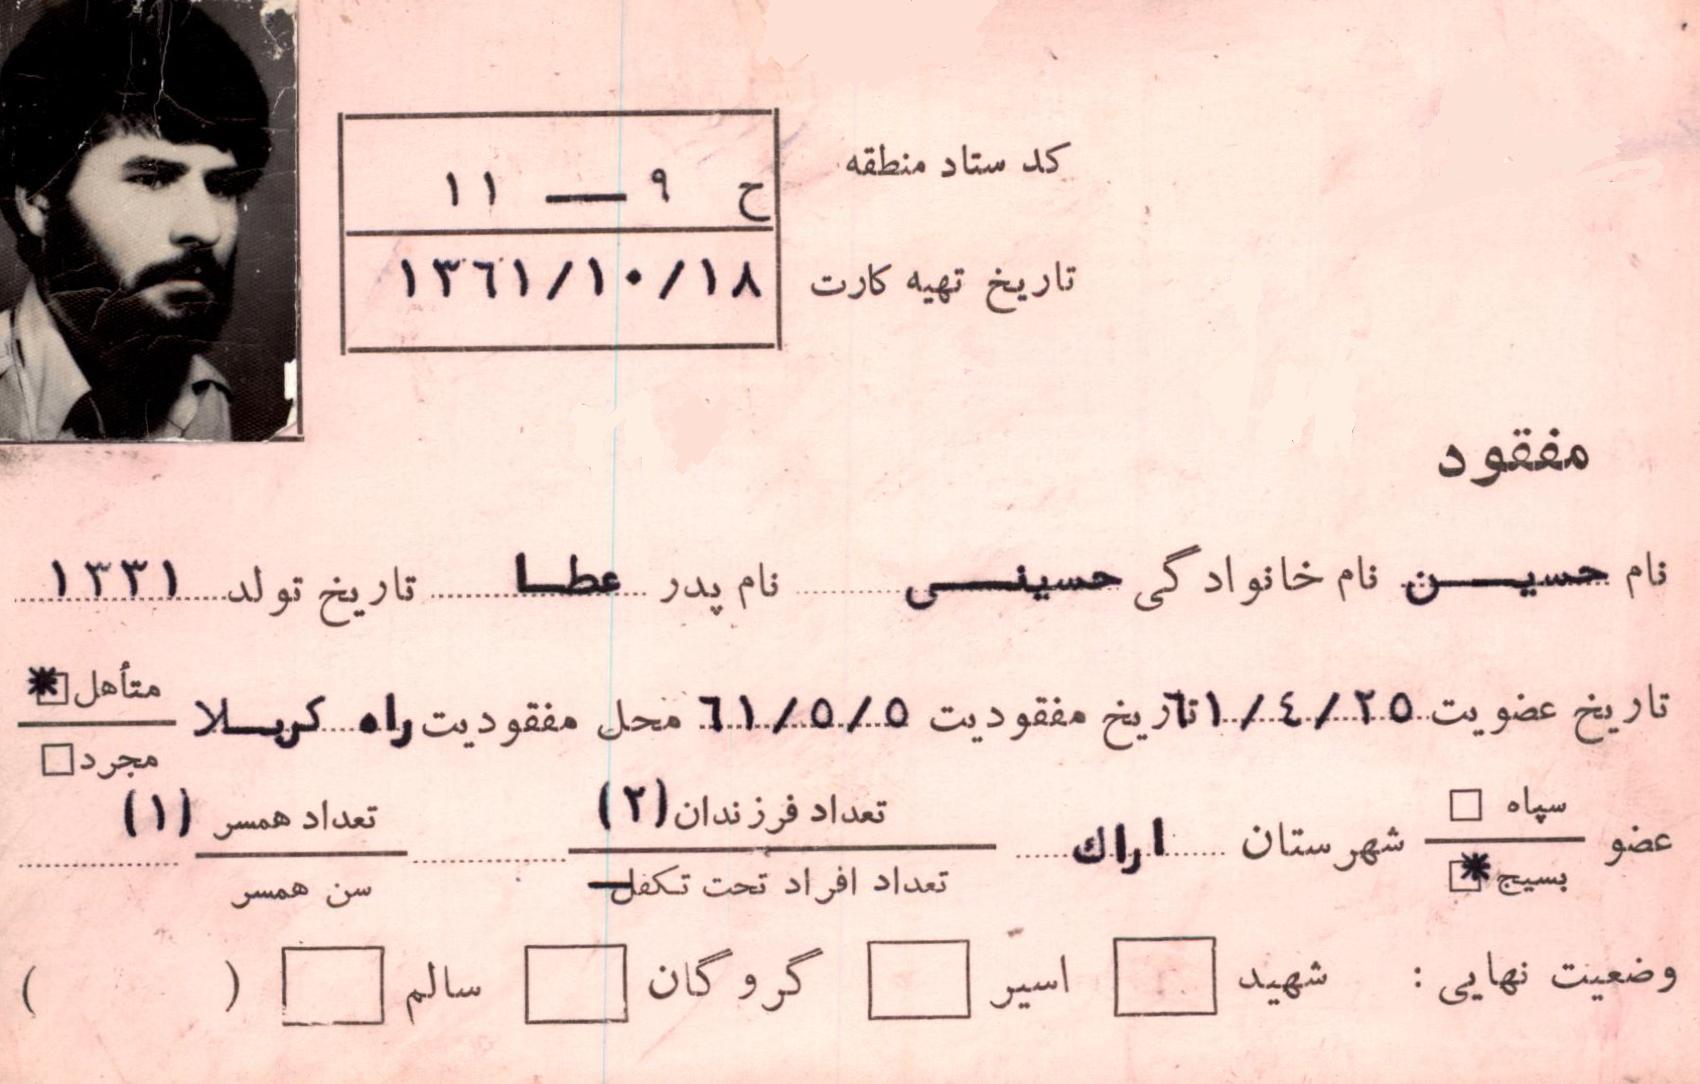 کد ستاد منطقه ح ۹ — ۱۱
تاریخ تهیه کارت ۱۳٦۱/۱۰/۱۸
مفقود
نام حسین نام خانوادگی حسینی نام پدر عطا تاریخ تولد ۱۳۳۱
تاریخ عضویت ٦۱/٤/۲٥ تاریخ مفقودیت ٦۱/٥/٥ محل مفقودیت راه کربلا متأهل
مجرد
عضو سپاه شهرستان اراك تعداد فرزندان (۲) تعداد همسر (۱)
بسیج تعداد افراد تحت تکفل — سن همسر
وضعیت نهایی : شهید اسیر گروگان سالم ( )